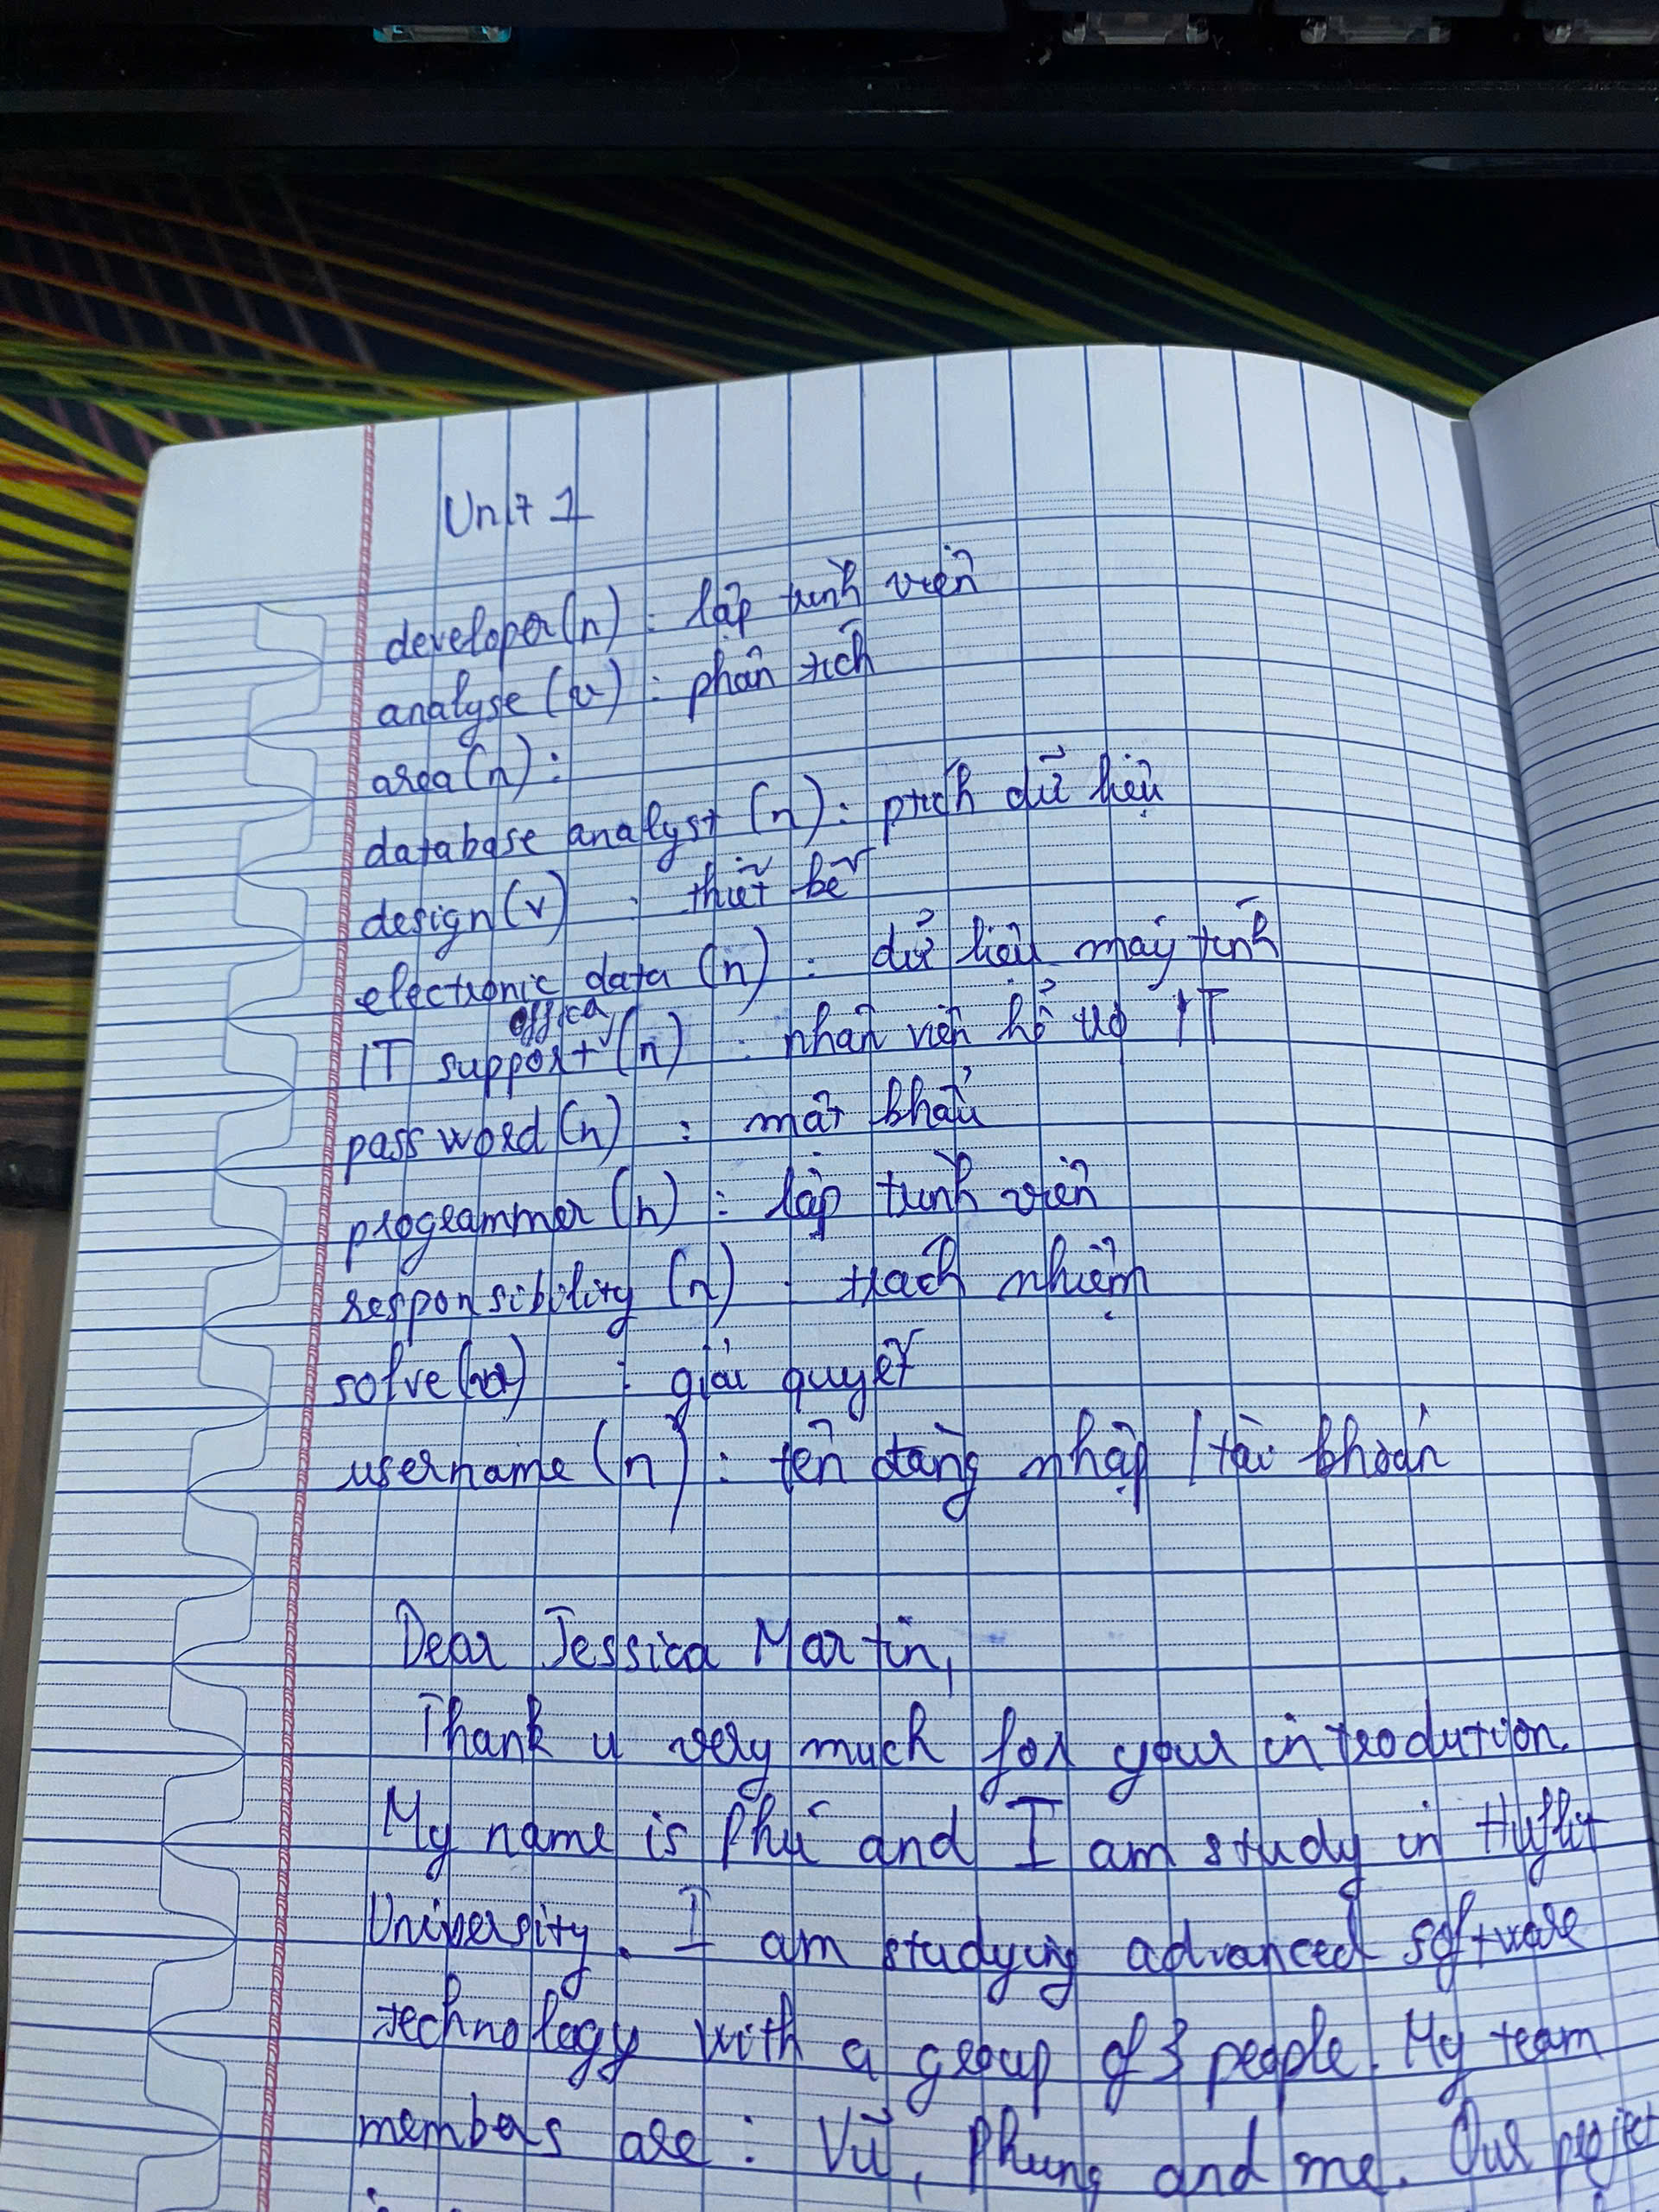 Unit 1
developer (n) : lập trình viên
analyse (v) : phân tích
area (n) :
database analyst (n) : ptích dữ liệu
design (v) : thiết kế
electronic data (n) : dử liệu máy tính
officer
IT support (n) : nhân viên hổ trợ IT
password (n) : mật khẩu
programmer (n) : lập trình viên
responsibility (n) : trách nhiệm
solve (v) : giải quyết
username (n) : tên đăng nhập / tài khoản
Dear Jessica Martin,
Thank u very much for your introdution.
My name is Phú and I am study in Huflit
University. I am studying advanced software
technology with a group of 3 people. My team
members are : Vũ, Phung and me. Our project